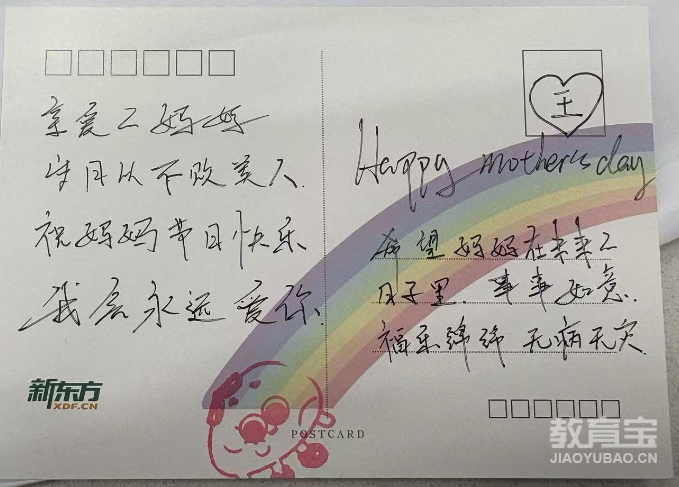 亲爱的妈妈
岁月从不败美人.
祝妈妈节日快乐
我会永远爱你.
新东方
XDF.CN
王
Happy mother's day
希望妈妈在未来的
日子里.事事如意.
福乐绵绵 无病无灾.
POSTCARD
教育宝
JIAOYUBAO.CN